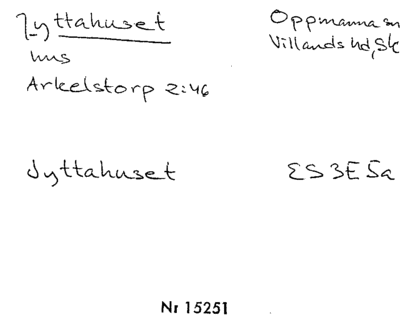 Jyttahuset
Oppmanna sn
Villands hd, Sk
hus
Arkelstorp 2:46
Jyttahuset
ES 3E 5a
Nr 15251